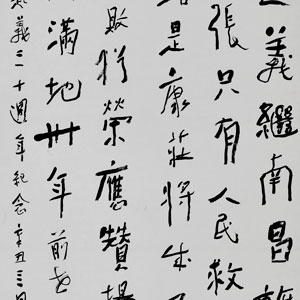 義繼南昌
張只有人民救
是康莊將
敗猶榮應贊揚
滿地卅年前
義三十週年紀念辛丑三月